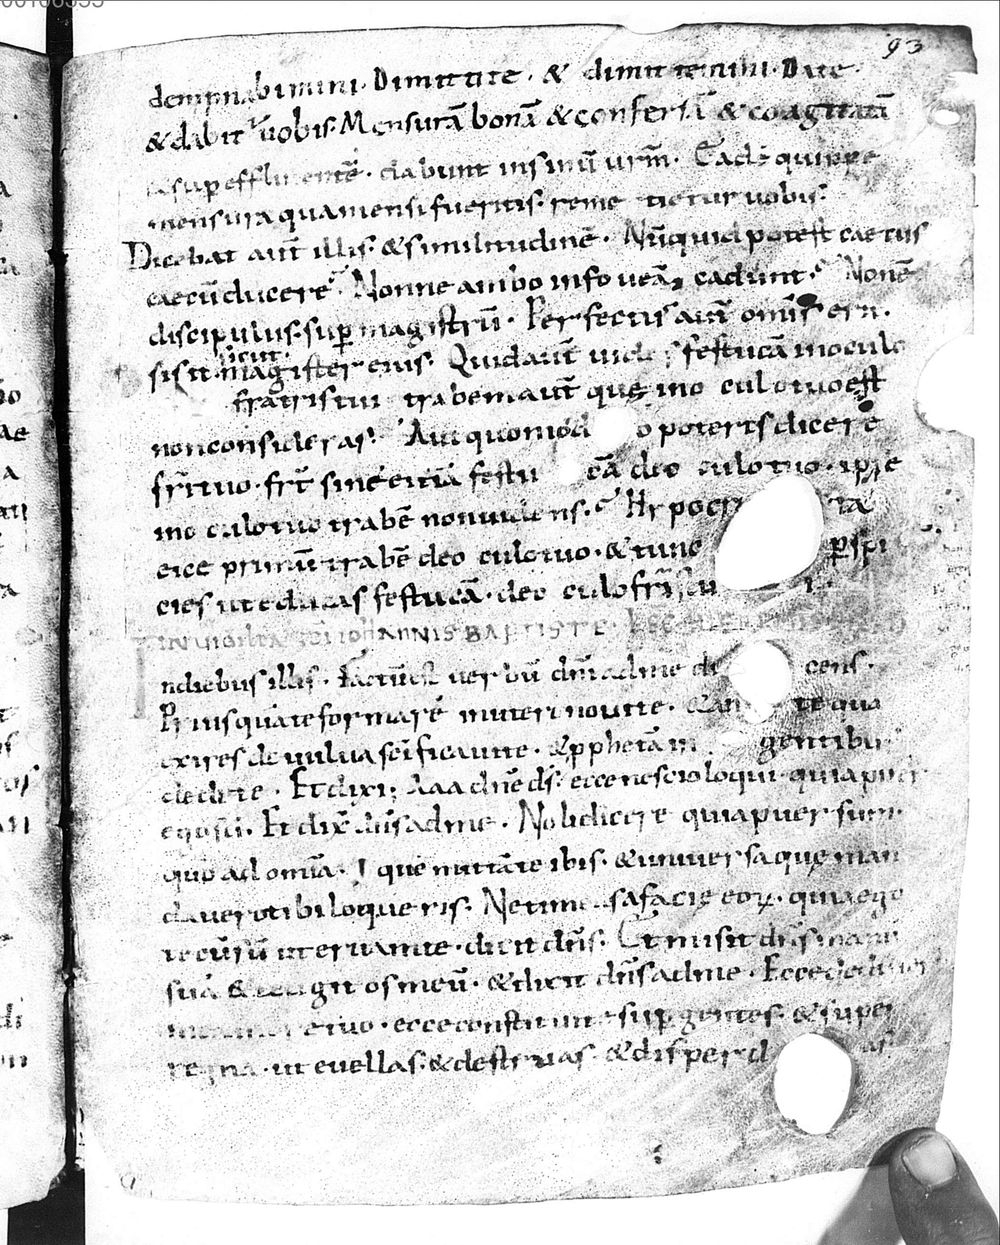 93
dempnabimini. Dimittite. & dimittemini. Date.
& dabit᷑ uobis. Mensurā bonā & confertā & coagitatā
& supeffluentē. dabunt insinū urm̄. Eadē quippe
mensura quamensi fueritis. reme tietur uobis.
Dicebat aut̄ illis. & similitudinē. Nūquid potest caecus
caecū ducere. Nonne ambo infoueā cadunt. Nonē
discipulus. sup magistrū. Perfectus aut̄ omīs erit.
sicut.
sisit. magister eius. Quidaut̄ uides festucā inoculo
fratris tui trabemaut̄ que ino culotuo est
nonconsideras. Aut quomod o potertsdicere
fr̄ituo. frt̄ sine eiciā festu cā deo culo tuo. ipse
ino culotuo trabē nonuidens. Hypocri ta
eice primū trabē deo culotuo. & tunc pspi
cies uteducas festucā. deo culofrīs tu i.
IN uigilia sc̄i iohANNIS BAPTISTE.
Indiebus illis. Factūest uerbū dnī adme di cens.
Priusquāteformarē inutero noui te. & an te qua
exires de uulua sc̄ificauite. & pphetā in gentibus
dedi te. Et dixi. Aaa dnē ds̄. ecce nescio loqui. quia puer
ego sū. Et dix̄ dn̄s adme. Noli dicere quia puer sum.
quō ad omīa. que mittāte ibis. & uniuersa que man
dauero tibi loqueris. Ne timeasafacie eorꝝ. quia ego
tecū sū ut eruamte. dicit dn̄s. Et misit dn̄s manū
suā & tetigit os meū. & dixit dn̄s adme. Ecce dedi
ore tuo. ecce constitui te sup gentes. & super
regna. ut euellas. & destruas. & disperd as.